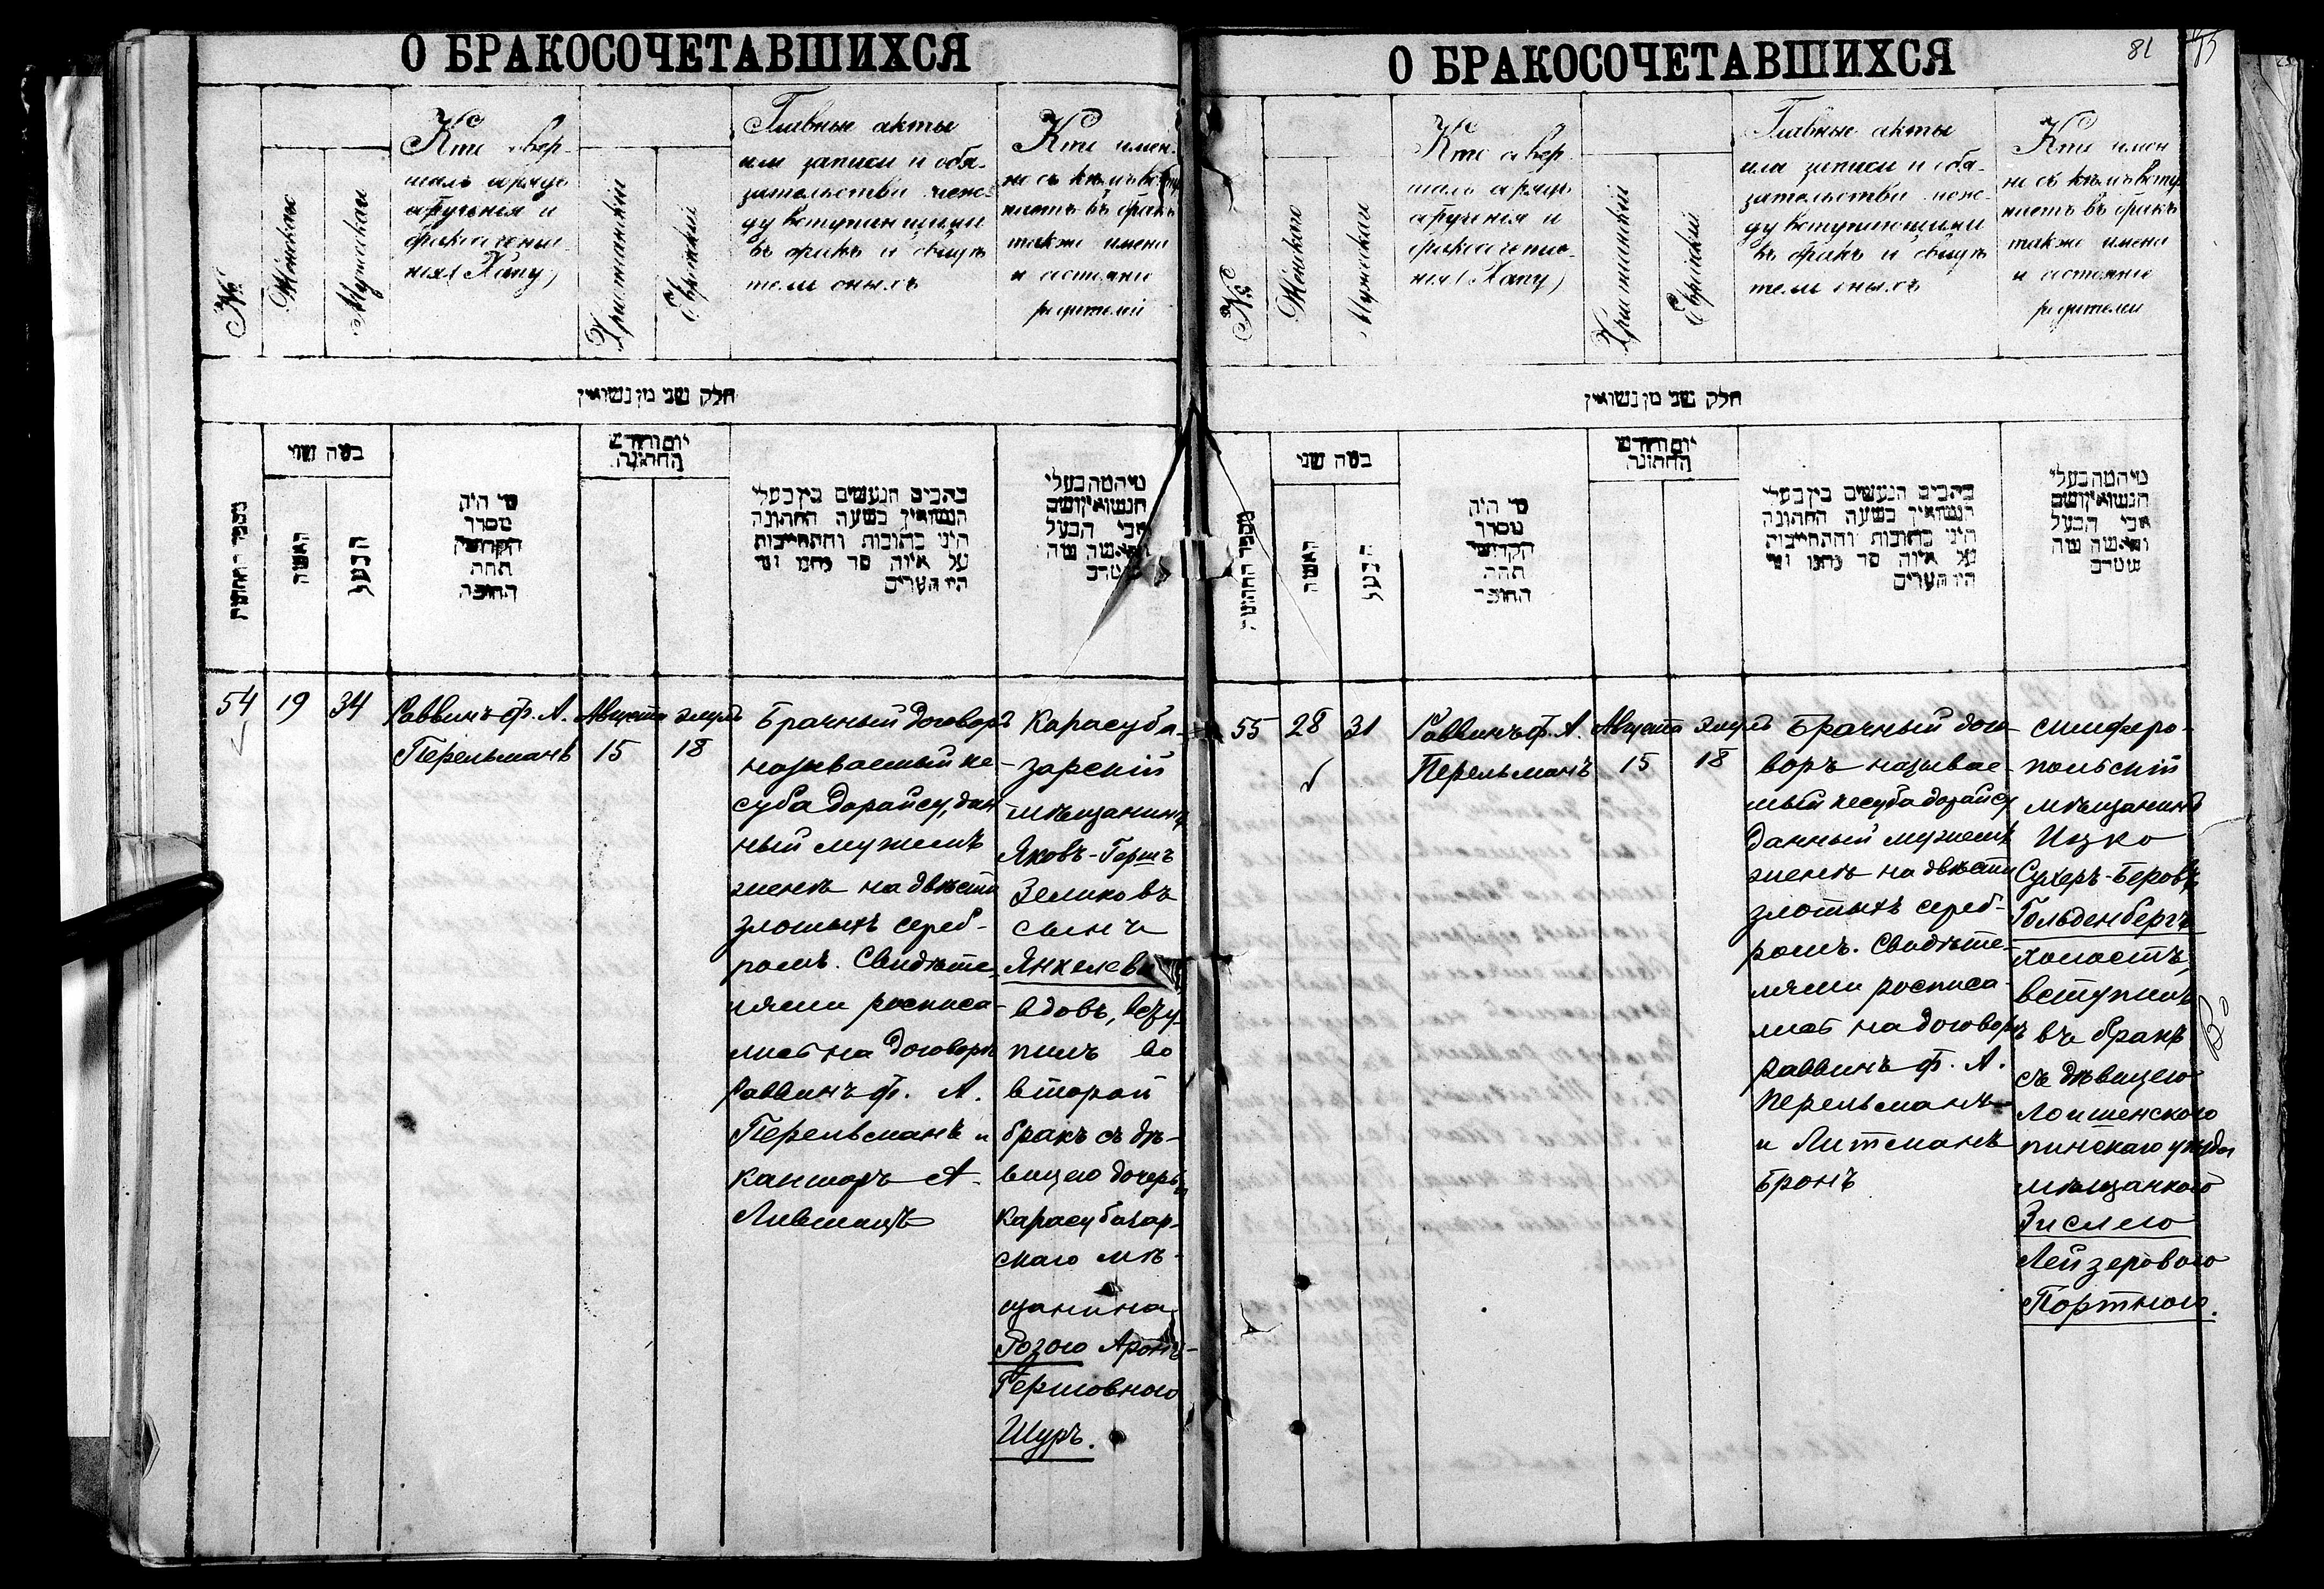 О БРАКОСОЧЕТАВШИХСЯ
№
Женская
Мужская
Кто совер-
шалъ обрядъ
обрученія и
бракосочета-
нія (Хапу)
Христіанскій
Еврейскій
Главные акты
или записи и обя-
зательства меж-
ду вступающими
въ бракъ и свидѣ
тели оныхъ
Кто имен-
но съ кѣмъ всту
паетъ въ бракъ
также имена
и состояніе
родителей
חלק שני מן נשואין
מספר החתונות
כמה שני
האשה
הבעל
מי היה
מסדר
הקדושין
תחת
החופה
יום וחודש
החתונה
כתבים הנעשים בין בעלי
הנשואין בשעה החתונה
היינו כתובות והתחייבות
על איזה סך נתנו ומי
היו העדים
מי המה בעלי
הנשואין ושם
אבי הבעל
והאשה
54
19
34
Раввинъ Ф. А.
Перельманъ
Августа
15
элулъ
18
Брачный договоръ
называемый ке-
суба дорайсу, дан
ный мужемъ
женѣ на двѣсти
злотыхъ сереб-
ромъ. Свидѣте-
лями росписа-
лись на договорѣ
Раввинъ Ф. А.
Перельманъ и
канторъ А
Лившицъ
Карасуба-
зарскій
мѣщанинъ
Яковъ-Гершъ
Зеликовъ
сынъ
Янкелеви
вдовъ, всту-
пилъ во
второй
бракъ съ дѣ-
вицею дочерью
Карасубазар-
скаго мѣ-
щанина
Розою Аронъ-
Гершовною
Шуръ.
О БРАКОСОЧЕТАВШИХСЯ
81
№
Женская
Мужская
Кто совер
шалъ обрядъ
обрученія и
бракосочета-
нія (Хапу)
Христіанскій
Еврейскій
Главные акты
или записи и обя-
зательства меж-
ду вступающими
въ бракъ и свидѣ
тели оныхъ
Кто имен
но съ кѣмъ всту
паетъ въ бракъ
также имена
и состояніе
родителей
חלק שני מן נשואין
מספר החתונות
כמה שני
האשה
הבעל
מי היה
מסדר
הקדושין
תחת
החופה
יום וחודש
החתונה
כתבים הנעשים בין בעלי
הנשואין בשעה החתונה
היינו כתובות והתחייבות
על איזה סך נתנו ומי
היו העדים
מי המה בעלי
הנשואין ושם
אבי הבעל
והאשה
55
28
31
Раввинъ Ф. А.
Перельманъ
Августа
15
Элулъ
18
Брачный дого-
воръ называе-
мый кесуба дорайсу
данный мужемъ
женѣ на двѣсти
злотыхъ сереб-
ромъ. Свидѣте-
лями росписа-
лись на договорѣ
Раввинъ Ф. А.
Перельманъ
и Литманъ
Бронъ
Симферо-
польскій
мѣщанинъ
Ицко
Сухеръ-Беровъ
Гольденбергъ
холостъ,
вступилъ
въ бракъ
съ дѣвицею
Логишенскою
пинскаго уѣзда
мѣщанкою
Зислею
Лейзеровою
Портною.